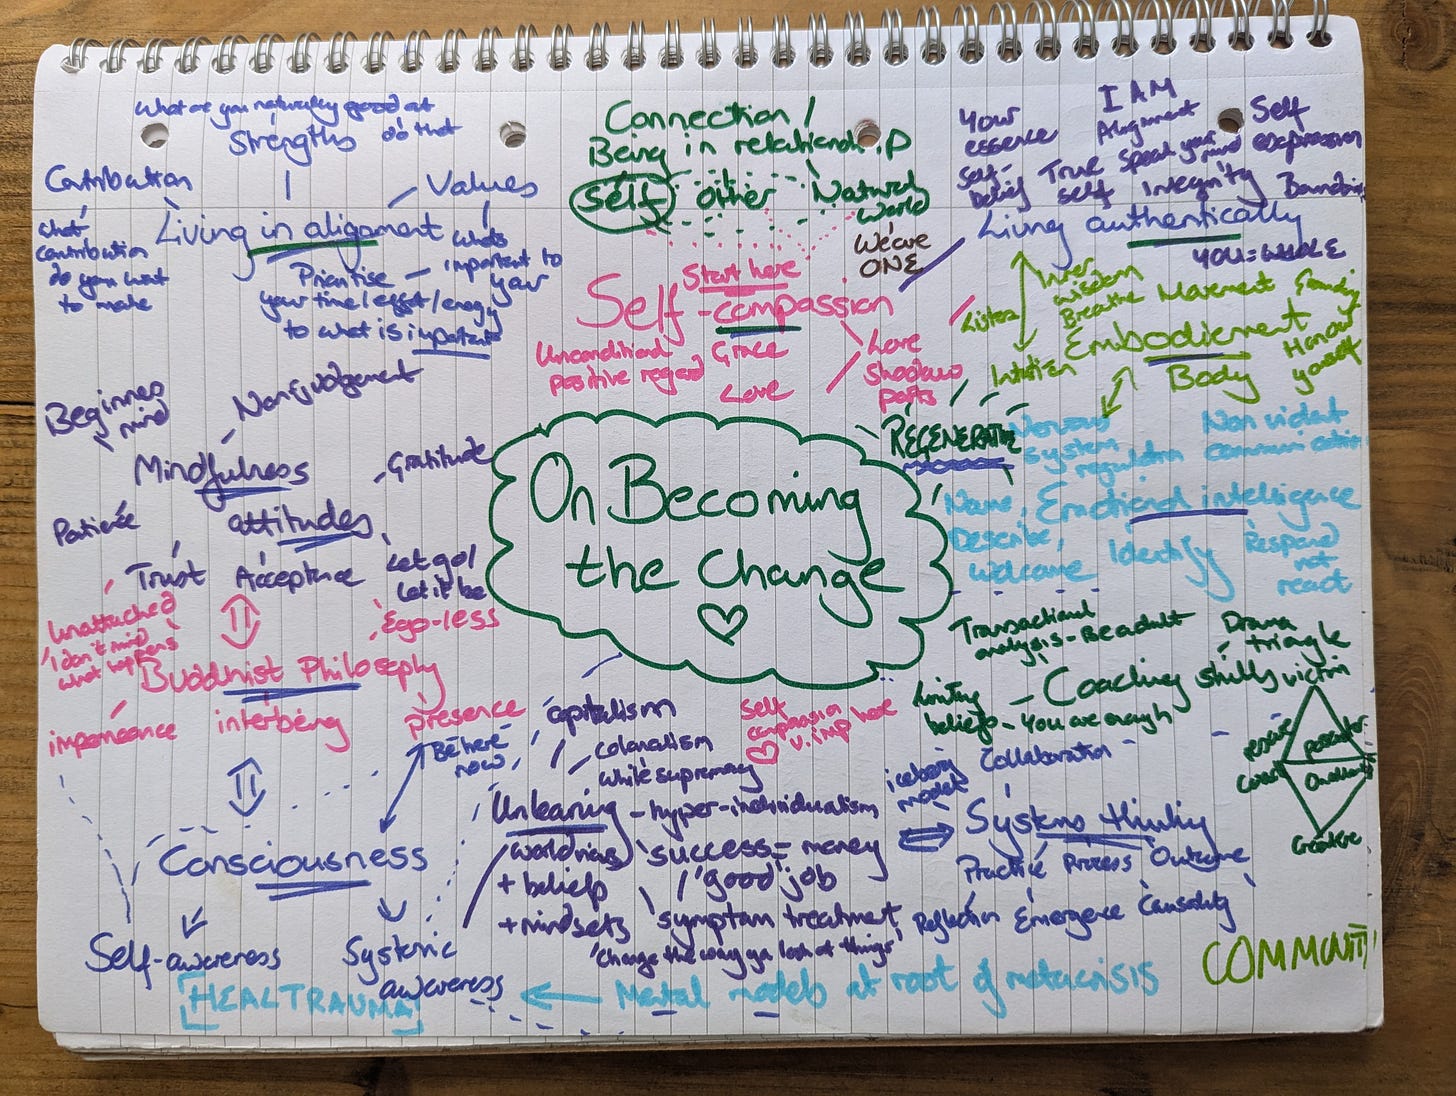 what are you naturally good at
do that
Strengths
Contribution
Values
Living in alignment
what
contribution
do you want
to make
what's
important to
you
Prioritise
your time/effort/energy
to what is important
Connection /
Being in relationship
self other Natural
world
We are
ONE
Your
essence
Self-
belief
I AM
Alignment
True
self
Speak your
mind
Self
expression
Integrity
Boundaries
Living authentically
YOU = WHOLE
Start here
Self-compassion
Unconditional
positive regard
Grace
Love
Love
Shadow
parts
Listen
Inner
wisdom
Breathe
Movement
Grounding
Embodiement
Body
Intuition
Honour
yourself
Beginners
mind
Nonjudgement
Mindfulness
attitudes
Gratitude
Patience
Trust
Acceptance
Let go/
let it be
REGENERATIVE
Nervous
system
regulation
Non violent
communication
Name,
Describe,
welcome
Emotional intelligence
Identify
Respond
not
react
On Becoming
the Change
Unattached
'I don't mind
what happens'
Ego-less
Buddhist Philosophy
impermeance
interbeing
presence
Be here
now
Transactional
analysis - Be adult
Drama
triangle
Limiting
beliefs - You are enough
Coaching skills
victim
rescuer
persecutor
Coach
Challenger
Creator
Self
compassion
here
v. imp
capitalism
colonialism
white supremacy
Unlearning - hyper-individualism
worldviews
+ beliefs
+ mindsets
success = money
/'good' job
symptom treatment
'Change the way you look at things'
iceberg
model
Collaboration
Systems thinking
Practice Process Outcome
Reflection Emergence Causality
Consciousness
Self-awareness
Systemic
awareness
HEAL TRAUMA
Mental models at root of metacrisis
COMMUNITY